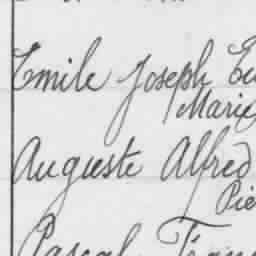 Emile Joseph
Marie
Auguste Alfred
Pie
Pascal